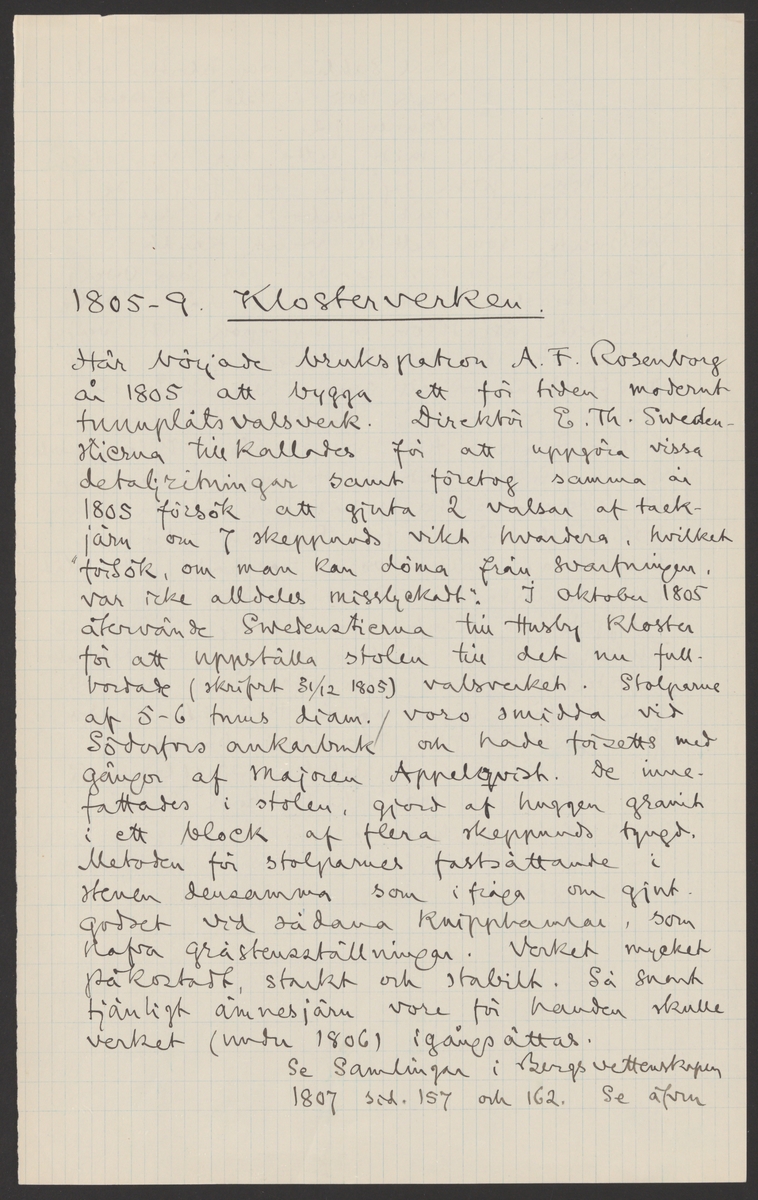 1805-9. Klosterverken.
Här började brukspatron A. F. Rosenborg
år 1805 att bygga ett för tiden modernt
tunnplåtsvalsverk. Direktör E. Th. Sweden-
stierna tillkallades för att uppgöra vissa
detaljritningar samt företog samma år
1805 försök att gjuta 2 valsar af tack-
järn om 7 skeppunds vikt hvardera, hvilket
"försök, om man kan döma från svarfningen,
var icke alldeles misslyckadt". I oktober 1805
återvände Swedenstierna till Husby Kloster
för att uppställa stolen till det nu full-
bordade (skrifvet 31/12 1805) valsverket. Stolparne
af 5-6 tums diam. / voro smidda vid
Söderfors ankarbruk och hade försetts med
gängor af Majoren Appelqvist. De inne-
fattades i stolen, gjord af huggen granit
i ett block af flera skeppunds tyngd.
Metoden för stolparnes fastsättande i
stenen densamma som ifråga om gjut-
godset vid sådana knipphamrar, som
hafva gråstensställningar. Verket mycket
påkostadt, starkt och stabilt. Så snart
tjänligt ämnesjärn vore för handen skulle
verket (under 1806) igångsättas.
Se Samlingar i Bergsvettenskapen
1807 sid. 157 och 162. Se äfven